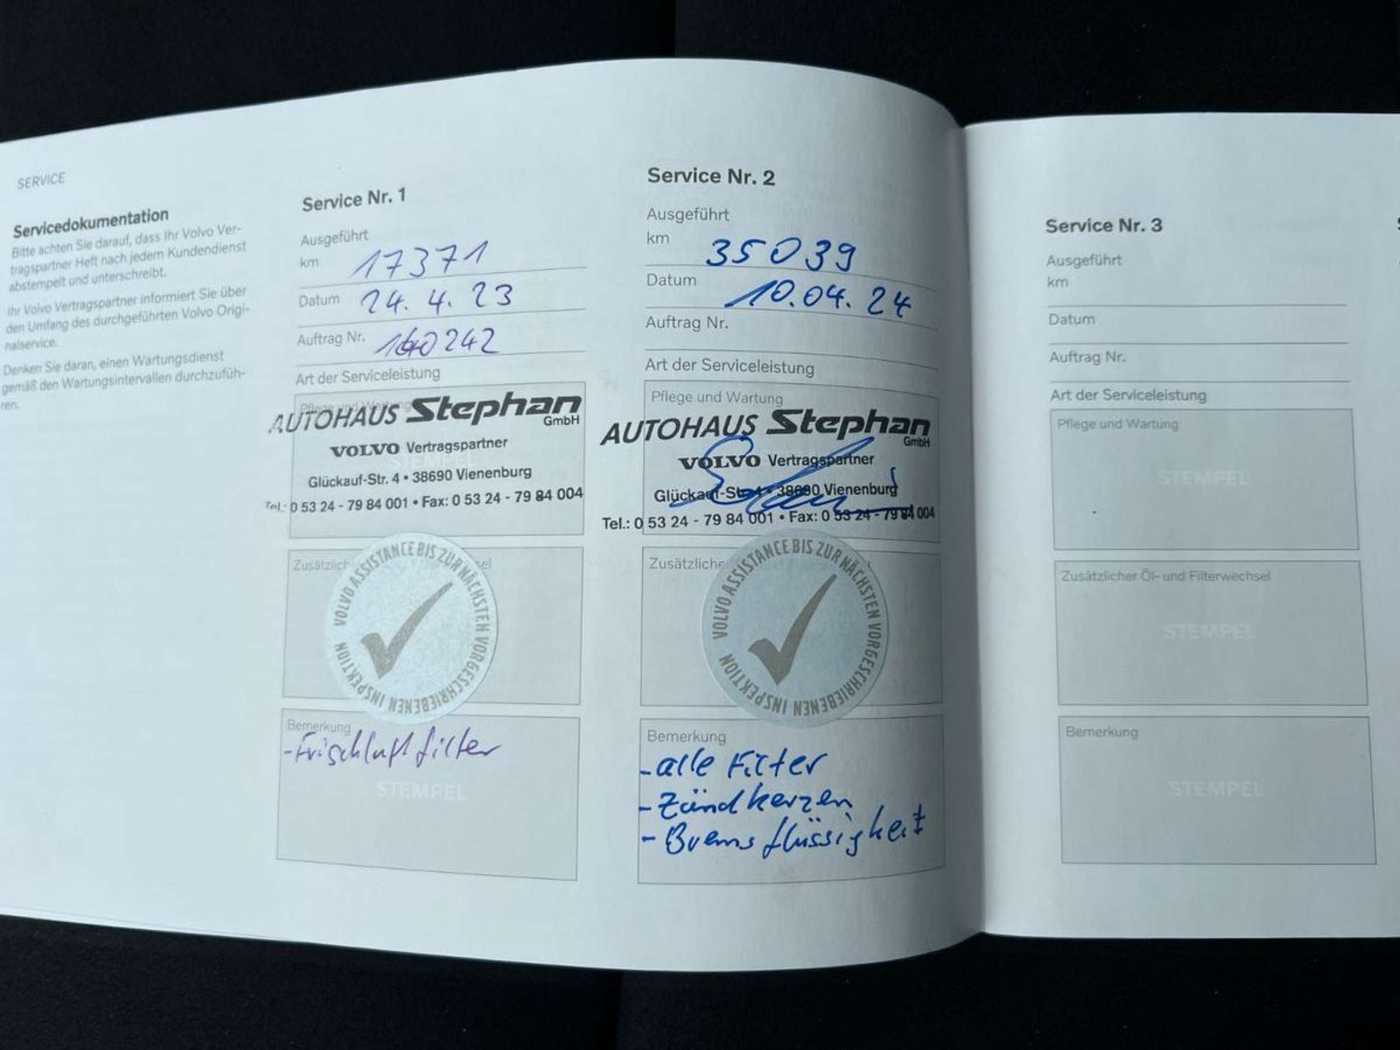 SERVICE
Servicedokumentation
Bitte achten Sie darauf, dass Ihr Volvo Ver-
tragspartner Heft nach jedem Kundendienst
abstempelt und unterschreibt.
Ihr Volvo Vertragspartner informiert Sie über
den Umfang des durchgeführten Volvo Origi-
nalservice.
Denken Sie daran, einen Wartungsdienst
gemäß den Wartungsintervallen durchzufüh-
ren.
Service Nr. 1
Ausgeführt
km 17371
Datum 24. 4. 23
Auftrag Nr.
Art der Serviceleistung
Pflege und Wartung
AUTOHAUS Stephan
GmbH
VOLVO Vertragspartner
Glückauf-Str. 4 • 38690 Vienenburg
Tel.: 0 53 24 - 79 84 001 • Fax: 0 53 24 - 79 84 004
VOLVO ASSISTANCE BIS ZUR NÄCHSTEN VORGESCHRIEBENEN INSPEKTION
Bemerkung
- Frischluftfilter
STEMPEL
Service Nr. 2
Ausgeführt
km 35039
Datum 10.04.24
Auftrag Nr.
Art der Serviceleistung
Pflege und Wartung
AUTOHAUS Stephan
GmbH
VOLVO Vertragspartner
Glückauf-Str. 4 • 38690 Vienenburg
Tel.: 0 53 24 - 79 84 001 • Fax: 0 53 24 - 79 84 004
VOLVO ASSISTANCE BIS ZUR NÄCHSTEN VORGESCHRIEBENEN INSPEKTION
Bemerkung
- alle Filter
- Zündkerzen
- Bremsflüssigkeit
Service Nr. 3
Ausgeführt
km
Datum
Auftrag Nr.
Art der Serviceleistung
Pflege und Wartung
STEMPEL
Zusätzlicher Öl- und Filterwechsel
STEMPEL
Bemerkung
STEMPEL